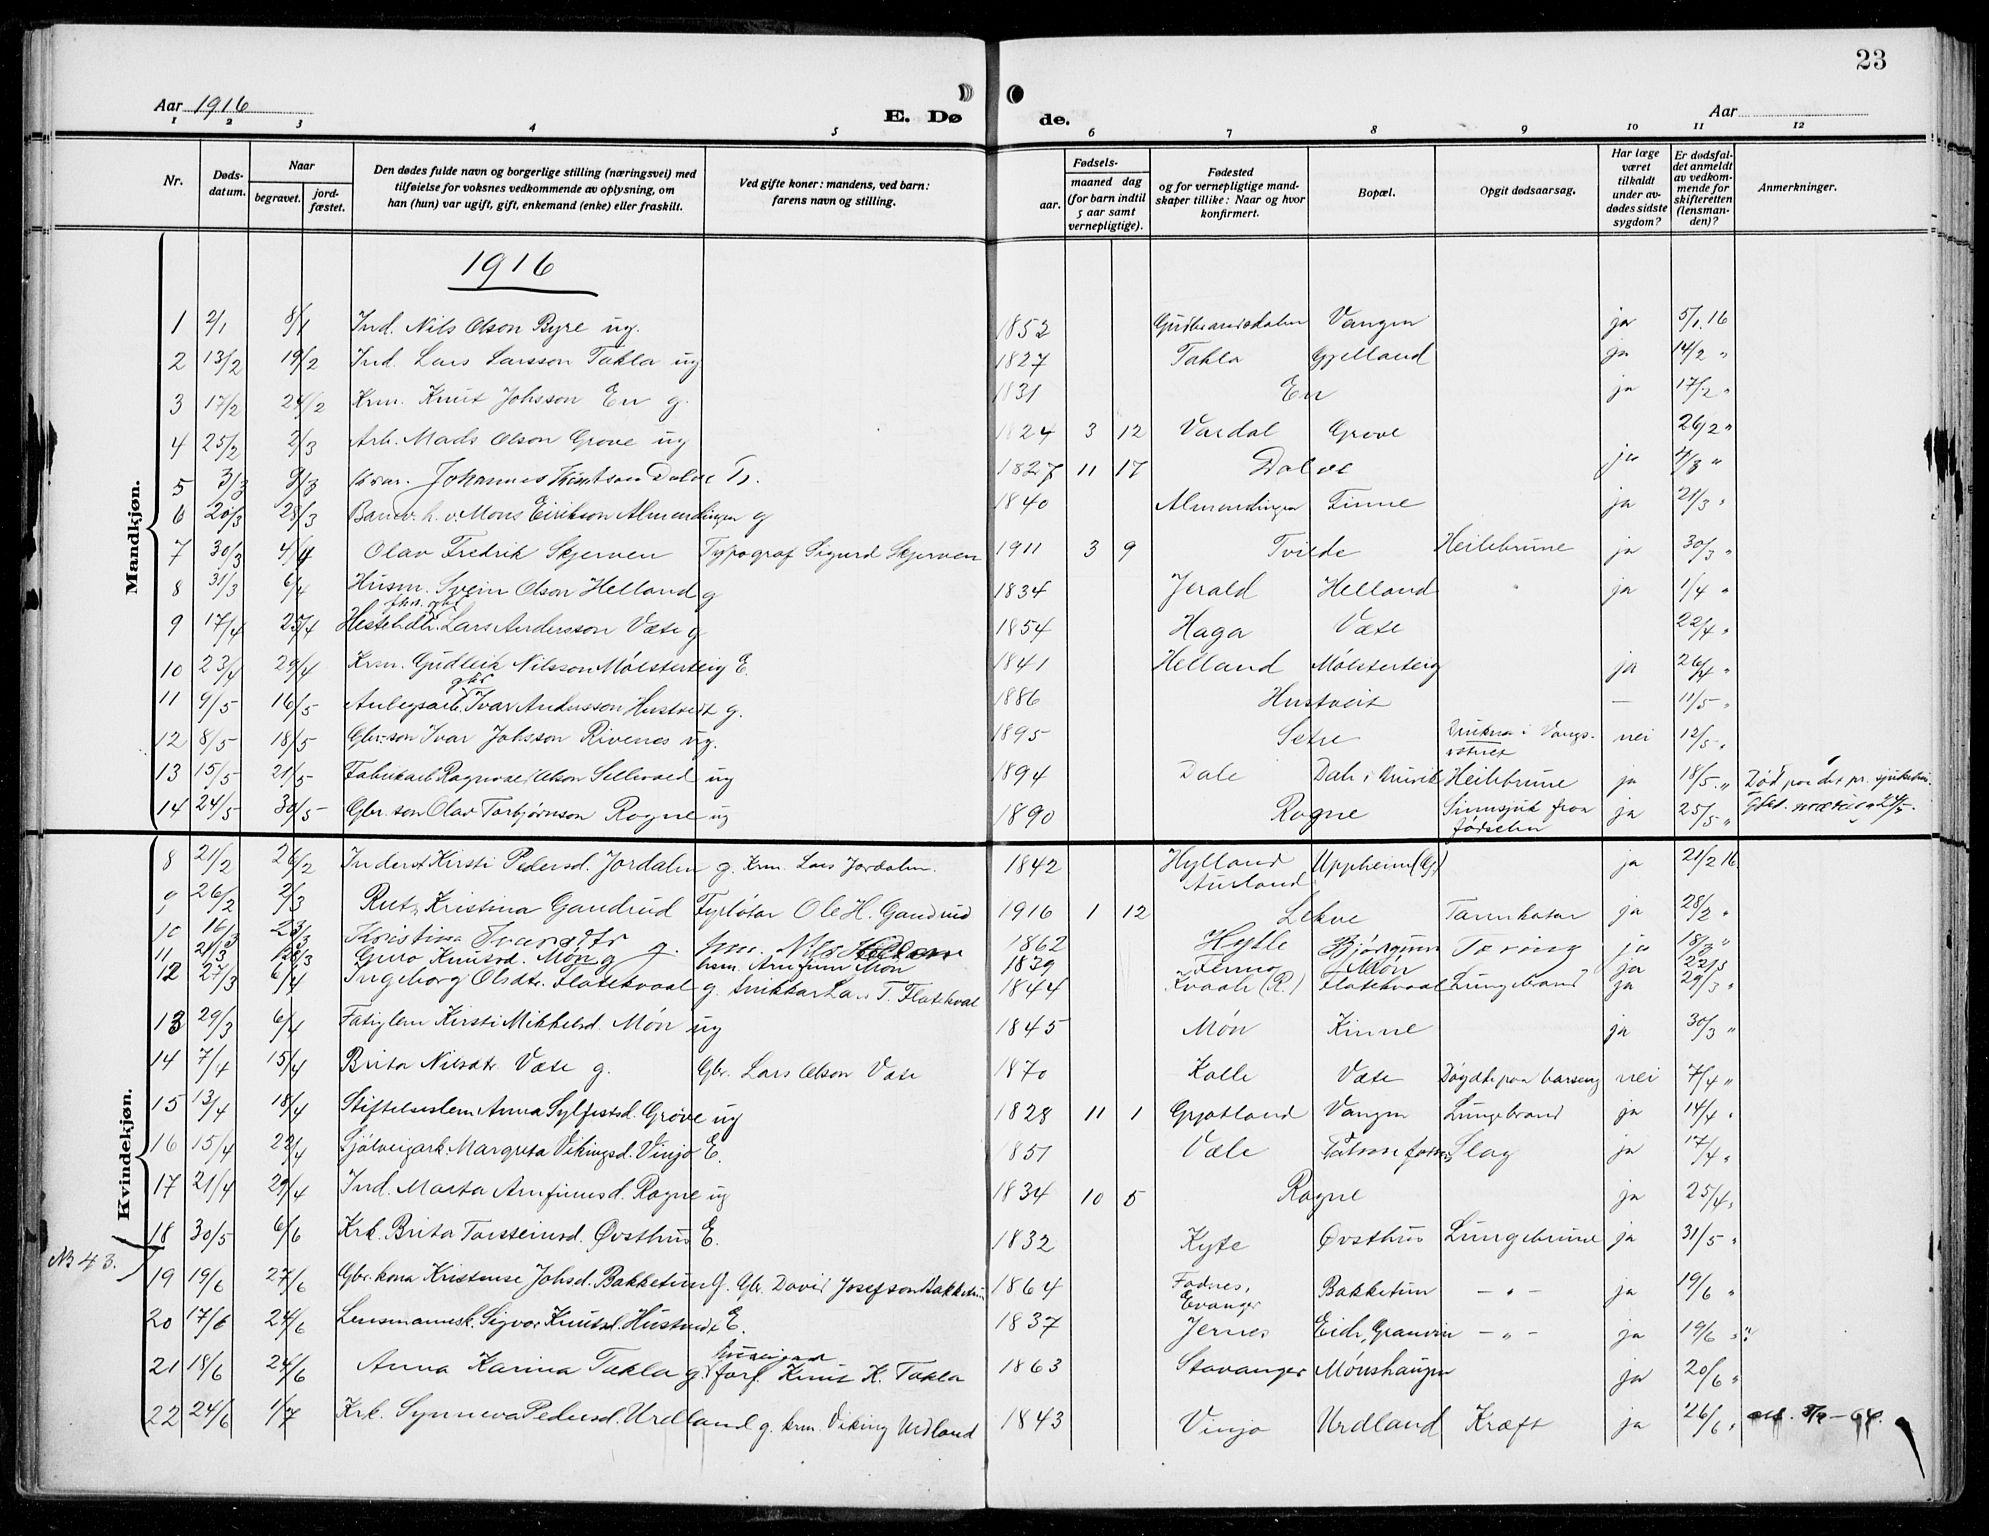 23
Aar 1916
E. Døde.
Aar
1 2 3 4 5 6 7 8 9 10 11 12
Nr.
Døds-datum.
Naar
begravet.
jord-fæstet.
Den dødes fulde navn og borgerlige stilling (næringsvei) med
tilføielse for voksnes vedkommende av oplysning, om
han (hun) var ugift, gift, enkemand (enke) eller fraskilt.
Ved gifte koner: mandens, ved barn:
farens navn og stilling.
Fødsels-
aar.
maaned dag
(for barn indtil
5 aar samt
vernepligtige).
Fødested
og for vernepligtige mand-
skaper tillike: Naar og hvor
konfirmert.
Bopæl.
Opgit dødsaarsag.
Har læge
været
tilkaldt
under av-
dødes sidste
sygdom?
Er dødsfal-
det anmeldt
av vedkom-
mende for
skifteretten
(lensman-
den)?
Anmerkninger.
Mandkjøn.
1916
1 2/1 8/1 Ind. Nils Olson Byre ug. 1852 Gudbrandsdalen Vangen ja 5/1 16
2 13/2 19/2 Ind. Lars Larsson Takla ug 1827 Takla Gjelland ja 14/2 "
3 17/2 24/2 Krm. Knut Johsson En g. 1831 En ja 17/2 "
4 25/2 2/3 Arb. Mads Olson Grove ug 1824 3 12 Vardal Grove 26/2 "
5 3/3 9/3 Johannes Knutson Dalve 1827 11 17 Dalve ja 4/3 "
6 20/3 28/3 Mons Eirikson Almendingen g 1840 Almendingen Finne ja 21/3 "
7 30/3 4/4 Olav Fredrik Skjerven Typograf Sigurd Skjerven 1911 3 9 Tvilde Heilebrune ja 30/3 "
8 31/3 6/4 Husm. Svein Olson Helland g 1834 Jerald Helland ja 1/4 "
9 17/4 25/4 Hestehdlr. Lars Andersson Væte g 1854 Haga Væte 22/4 "
10 23/4 29/4 Krm. Gudleik Nilsson Mølsterteig E. 1841 Helland Mølsterteig ja 26/4 "
11 9/5 16/5 Anlegsarb. Ivar Andersson Hustveit g. 1886 Hustveit — 11/5 "
12 8/5 18/5 Gbr.-son Ivar Johsson Rivenes ug. 1895 Setre Drukna i Vangs- nei 12/5 "
13 15/5 21/5 Fabrikarb. Ragnvald Olson Selheved ug 1894 Dale Dale i Bruvik Heilebrune ja 18/5 " Død paa det pr. sjukehus
14 24/5 30/5 Gbr. son Olav Torbjørnson Rogne ug 1890 Rogne Sinnsjuk fraa fødselen ja 25/5 "
Kvindekjøn.
8 21/2 26/2 Inderst Kirsti Pedersd. Jordalen g. Krm. Lars Jordalen. 1842 Hylland Aurland Uppheim (G.) ja 21/2 16
9 26/2 2/3 Rut Kristina Gandrud Fyrbøtar Ole H. Gandrud 1916 1 12 Lekve Tarmkatar ja 28/2 "
10 16/3 23/3 Kristina Ivarsdtr g. 1862 Hylle Bjørgum Tæring ja 18/3 "
11 21/3 28/3 Guro Knutsd. Møn g husm. Arnfinn Møn 1839 Møn ja 22/3
12 27/3 6/4 Ingeborg Olsdtr. Flatekvaal g. Snikkar Lars T. Flatekval 1844 Kvaale (R.) Flatekvaal Lungebrand ja 29/3 "
13 29/3 6/4 Fatiglem Kirsti Mikkelsd. Møn ug 1845 Møn Kinne ja 30/3 "
14 7/4 15/4 Brita Nilsdtr Væte g. Gbr. Lars Olson Væte 1870 Kolle Væte Døydde paa barseng nei 7/4 "
15 13/4 18/4 Stiftelseslem Anna Sylfestsd. Grove ug 1828 11 1 Gjøtland Vangen Lungebrand ja 14/4 "
16 15/4 22/4 Sjølveigark. Margreta Vikingsd. Vinjo E. 1851 Væle Slag ja 17/4 "
17 21/4 29/4 Ind. Marta Arnfinnsd. Rogne ug 1834 10 5 Rogne ja 25/4 "
18 30/5 6/6 Krk. Brita Torsteinsd. Øvsthus E. 1832 Kyte Øvsthus Lungebrune ja 31/5 "
No 43.
19 19/6 27/6 Gbr. kona Kristense Johsd. Bakketun G. Gbr. David Josefson Bakketun 1864 Fadnes, Evanger Bakketun — " — ja 19/6 "
20 17/6 24/6 Lensmannsk. Sigvor Knutsd. Hustveit E. 1837 Jernes Eide, Granvin — " — ja 19/6 "
21 18/6 24/6 Anna Karina Takla g. forf. Knut K. Takla 1863 Stavanger Mønshaugen ja 20/6 "
22 24/6 1/7 Krk. Synneva Pedersd. Urdland g. krm. Viking Urdland 1843 Vinjo Urdland Kræft ja 26/6 "